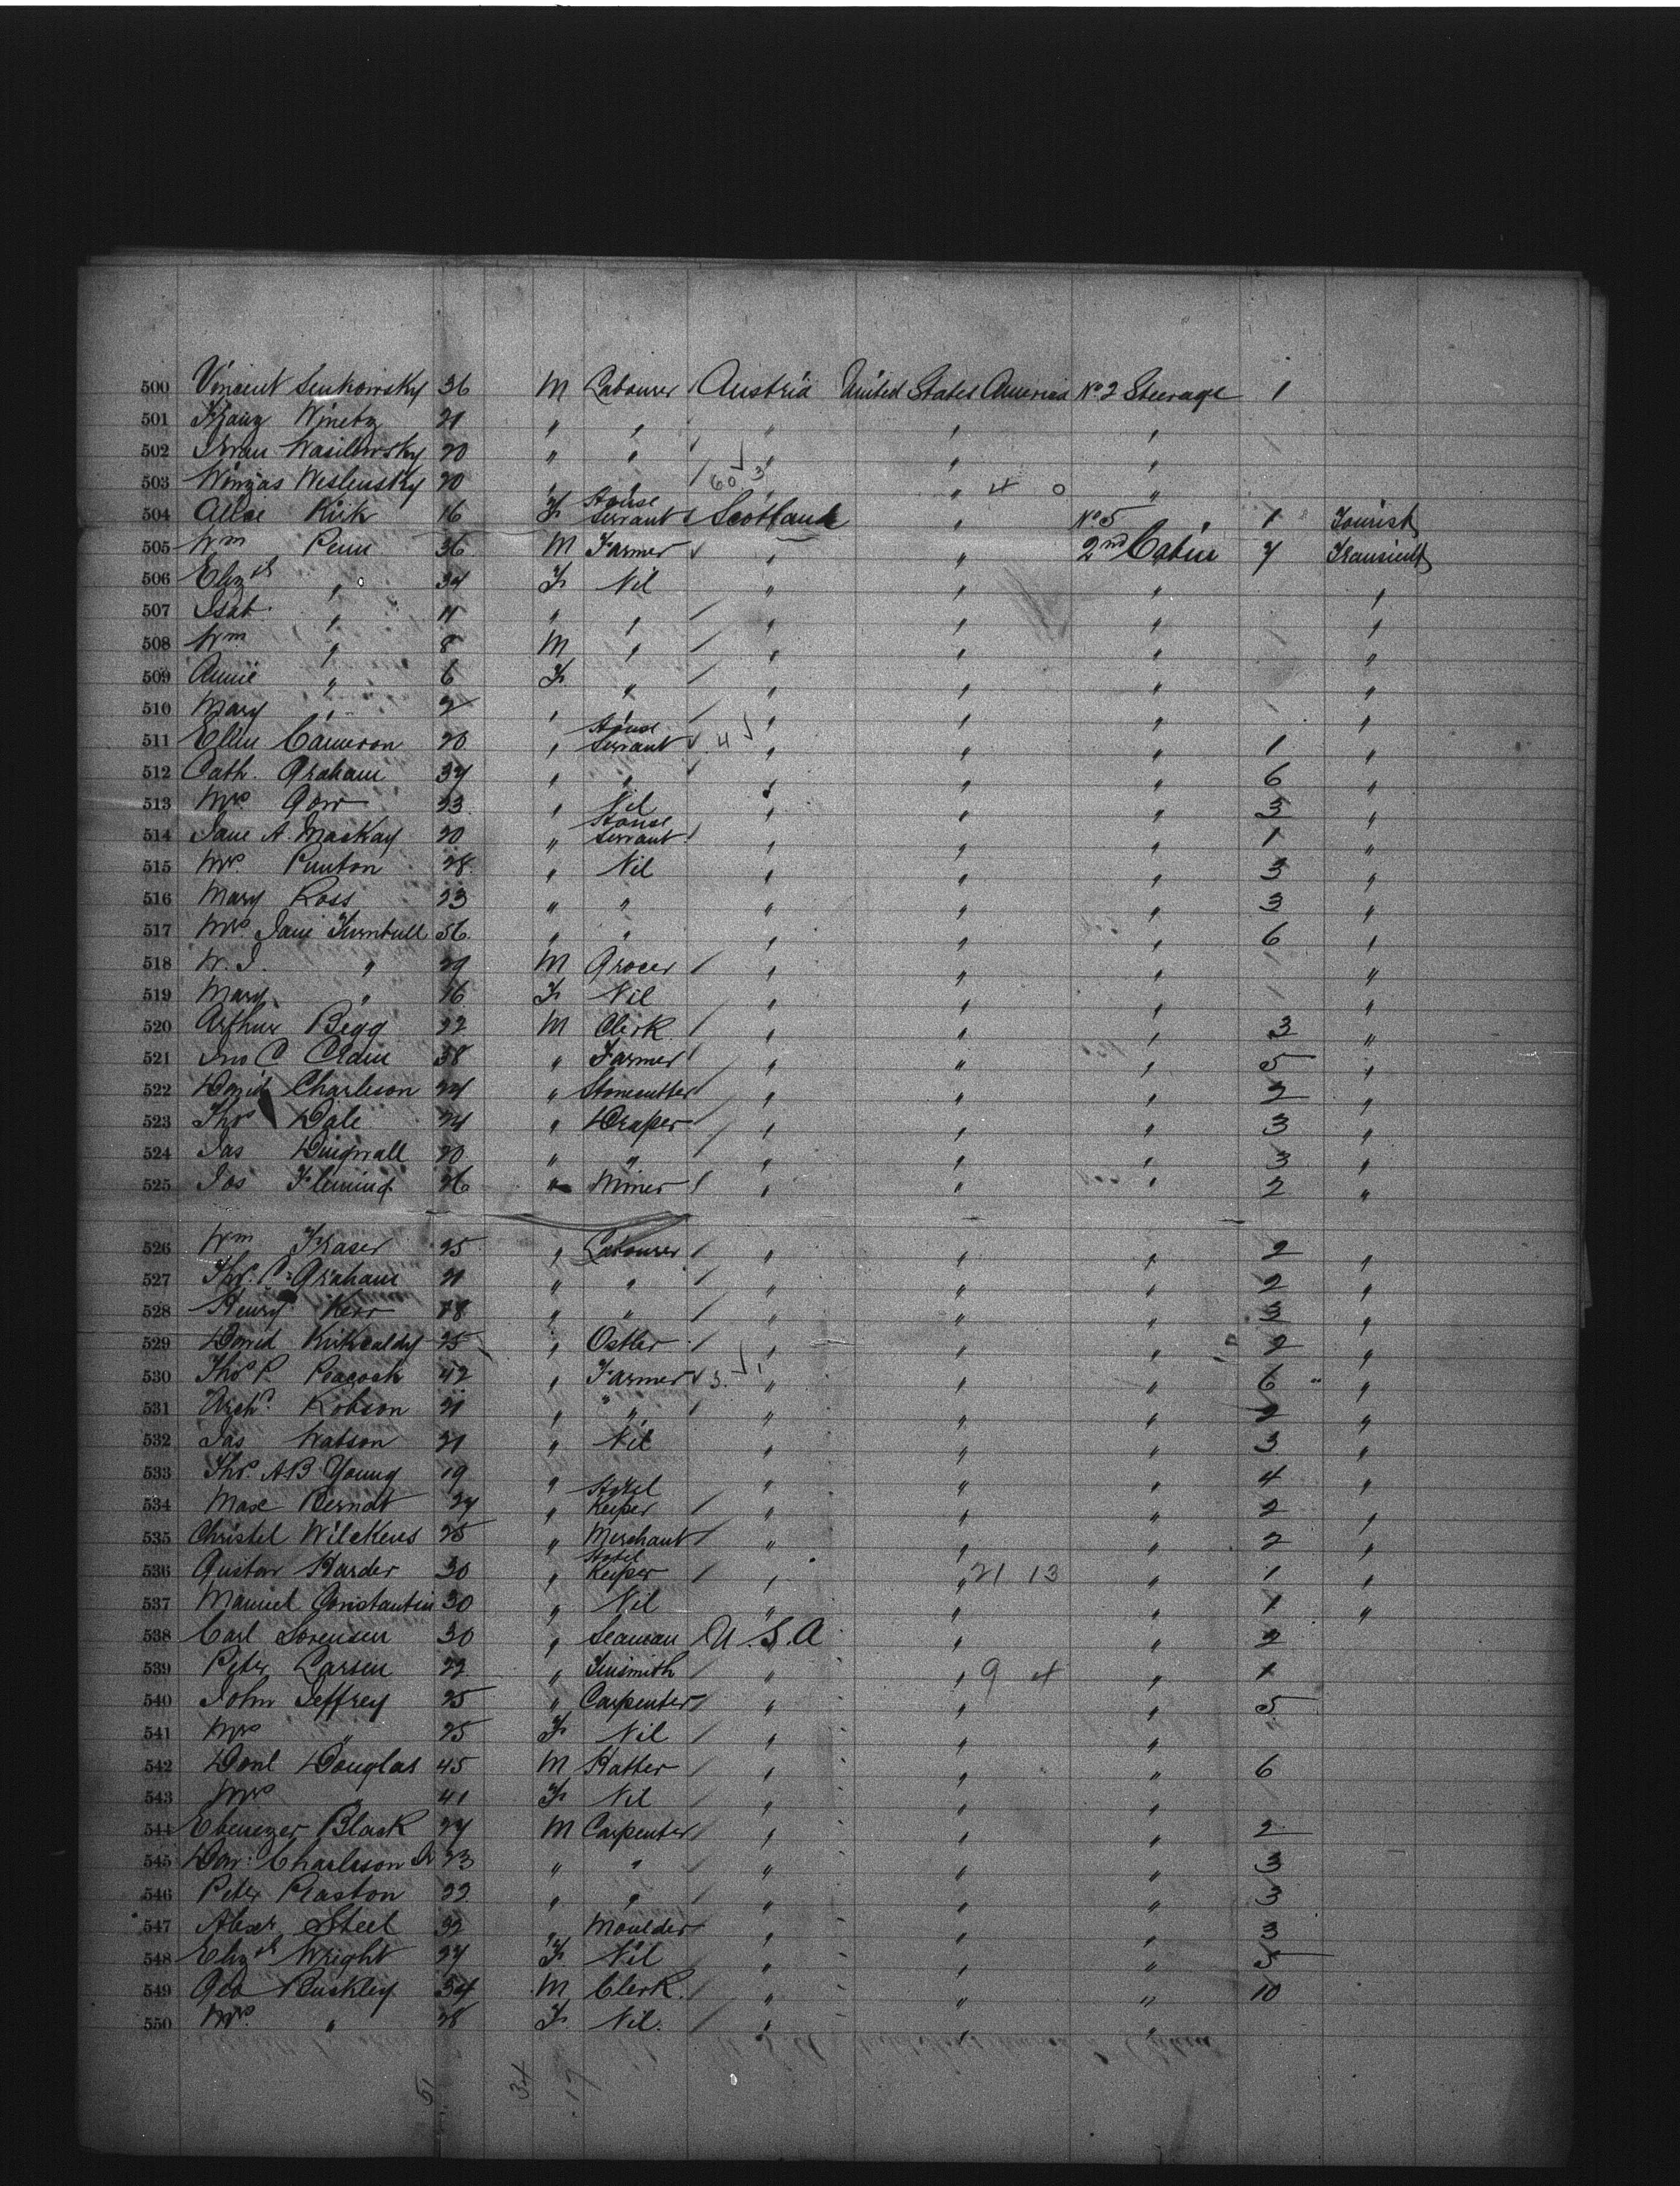 500 Vincent Senkowsky 36 M Labourer Austria United States America No 2 Steerage 1
501 Franz Winetz 21 " " " " "
502 Iwan Wasilewsky 20 " " " " "
503 Winzas Weslensky 20 " " 60 3 " 4 0 "
504 Alice Kirk 16 F House Servant Scotland " No 5 " 1 Tourist
505 Wm Penn 36 M Farmer " " 2nd Cabin 7 Transient
506 Elizth " 34 F Nil " " " "
507 Isab. " 11 " " " " " "
508 Wm " 8 M " " " " "
509 Annie " 6 F " " " " "
510 Mary " 2 " " " " " "
511 Ellen Cameron 20 " House Servant 4 " " " 1 "
512 Cath. Graham 37 " " " " " 6 "
513 Mrs Gow 23 " Nil " " " 3 "
514 Jane A. MacKay 20 " House Servant " " " 1 "
515 Mrs Punton 28 " Nil " " " 3 "
516 Mary Ross 23 " " " " " 3 "
517 Mrs Jane Turnbull 56 " " " " " 6 "
518 W. J. " 29 M Grocer " " " "
519 Mary " 16 F Nil " " " "
520 Arthur Begg 22 M Clerk " " " 3 "
521 Jno C 38 " Farmer " " " 5 "
522 David Charleson 24 " Stonecutter " " " 2 "
523 Thos Dale 24 " Draper " " " 3 "
524 Jas Dingwall 20 " " " " " 3 "
525 Jos Fleming 26 " Miner " " " 2 "
526 Wm Fraser 25 " Labourer " " " 2 "
527 Thos. C. Graham 21 " " " " " 2 "
528 Henry Kerr 18 " " " " " 3 "
529 David Kirkcaldy 25 " Ostler " " " 2 "
530 Thos P. Peacock 42 " Farmer 3 1 " " " 6 "
531 Archd. Robson 21 " " " " " 2 "
532 Jas Watson 21 " Nil " " " 3 "
533 Thos. A B Young 19 " " " " 4 "
534 Max Berndt 27 " Hotel Keeper " " " 2 "
535 Christel Wilckens 25 " Merchant " " " 2 "
536 Gustav Harder 30 " Hotel Keeper " " 21 13 " 1 "
537 Manuel Constantin 30 " Nil " " " 1 "
538 Carl Sorensen 30 " Seaman U. S. A " " 2
539 Peter Larsen 22 " Tinsmith " " 9 4 " 1
540 John Jeffrey 25 " Carpenter " " " 5
541 Mrs " 25 F Nil " " "
542 Donl Douglas 45 M Hatter " " " 6
543 Mrs " 41 F Nil " " "
544 Ebenezer Black 27 M Carpenter " " " 2
545 Dav: Charleson Jr 23 " " " " " 3
546 Peter Easton 22 " " " " " 3
547 Alexr. Steel 32 " Moulder " " " 3
548 Elizth Wright 27 F Nil " " " 5
549 Geo Buckley 34 M Clerk " " " 10
550 Mrs " 28 F Nil " " "
51 34 17